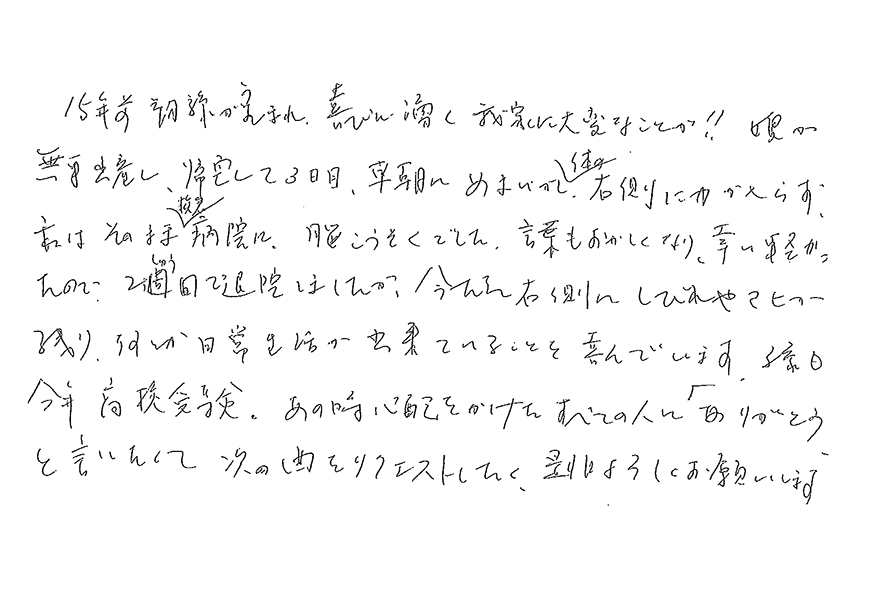 15年前 初孫が産まれ、喜びに湧く我家に大変なことが!! 娘が
無事出産し、帰宅して3日目、早朝に めまいがし、体の右側に力が入らず、
私は そのまま 救急病院に、脳こうそくでした。言葉もおかしくなり、幸い軽かっ
たので、2週間(しゅう)で退院しましたが、今だに右側に しびれやマヒが
残り、何とか日常生活が出来ていることを喜んでいます。孫も
今年 高校受験。あの時心配をかけた すべての人に「ありがとう」
と言いたくて 次の曲をリクエストしたく、よろしくお願いします